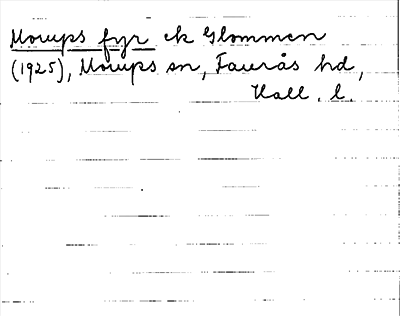 Morups fyr ek Glommen
(1925), Morups sn, Faurås hd,
Hall. l.